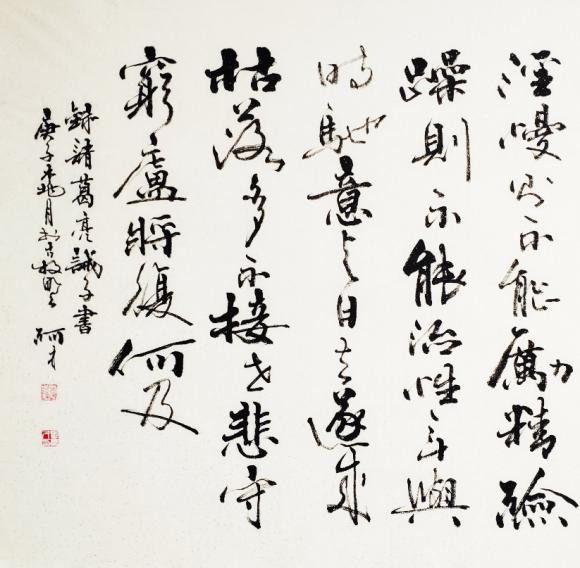 淫慢则不能勵精險
躁則不能治性年與
時馳意与日去遂成
枯落多不接世悲守
窮廬將復何及
錄諸葛亮誡子書
庚子月於古